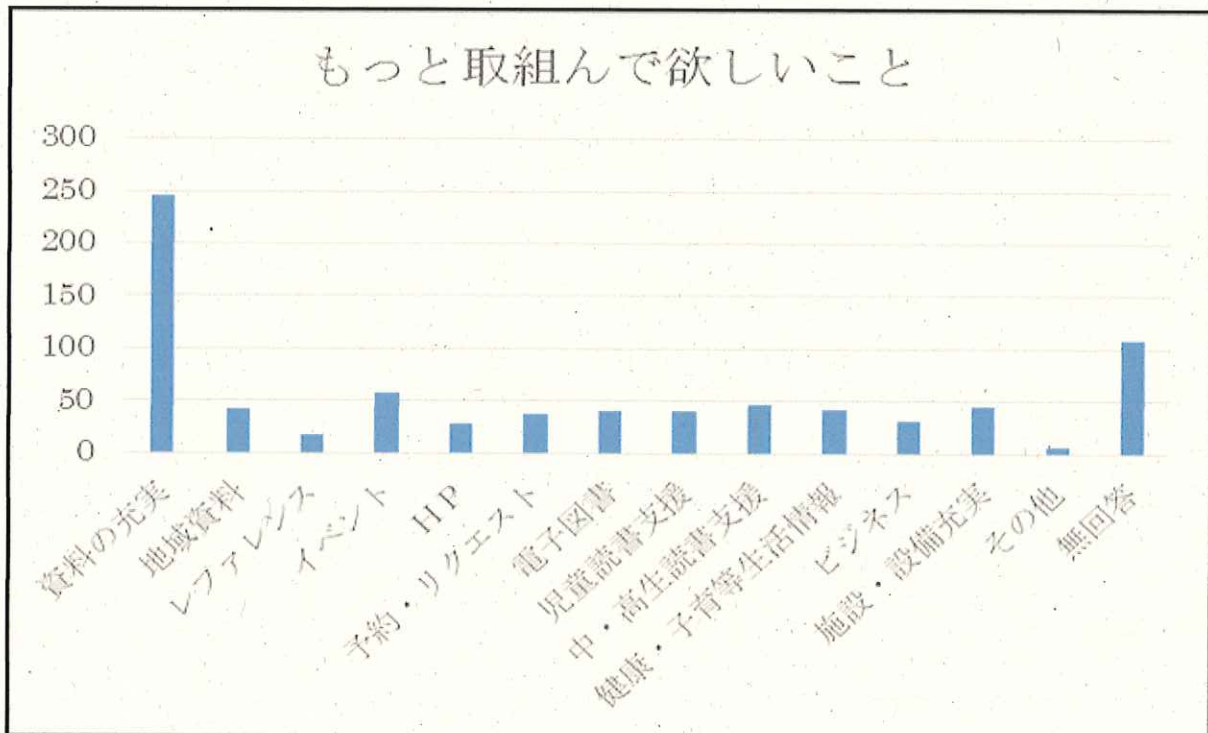 もっと取組んで欲しいこと
300
250
200
150
100
50
0
資料の充実
地域資料
レファレンス
イベント
HP
予約・リクエスト
電子図書
児童読書支援
中・高生読書支援
健康・子育等生活情報
ビジネス
施設・設備充実
その他
無回答